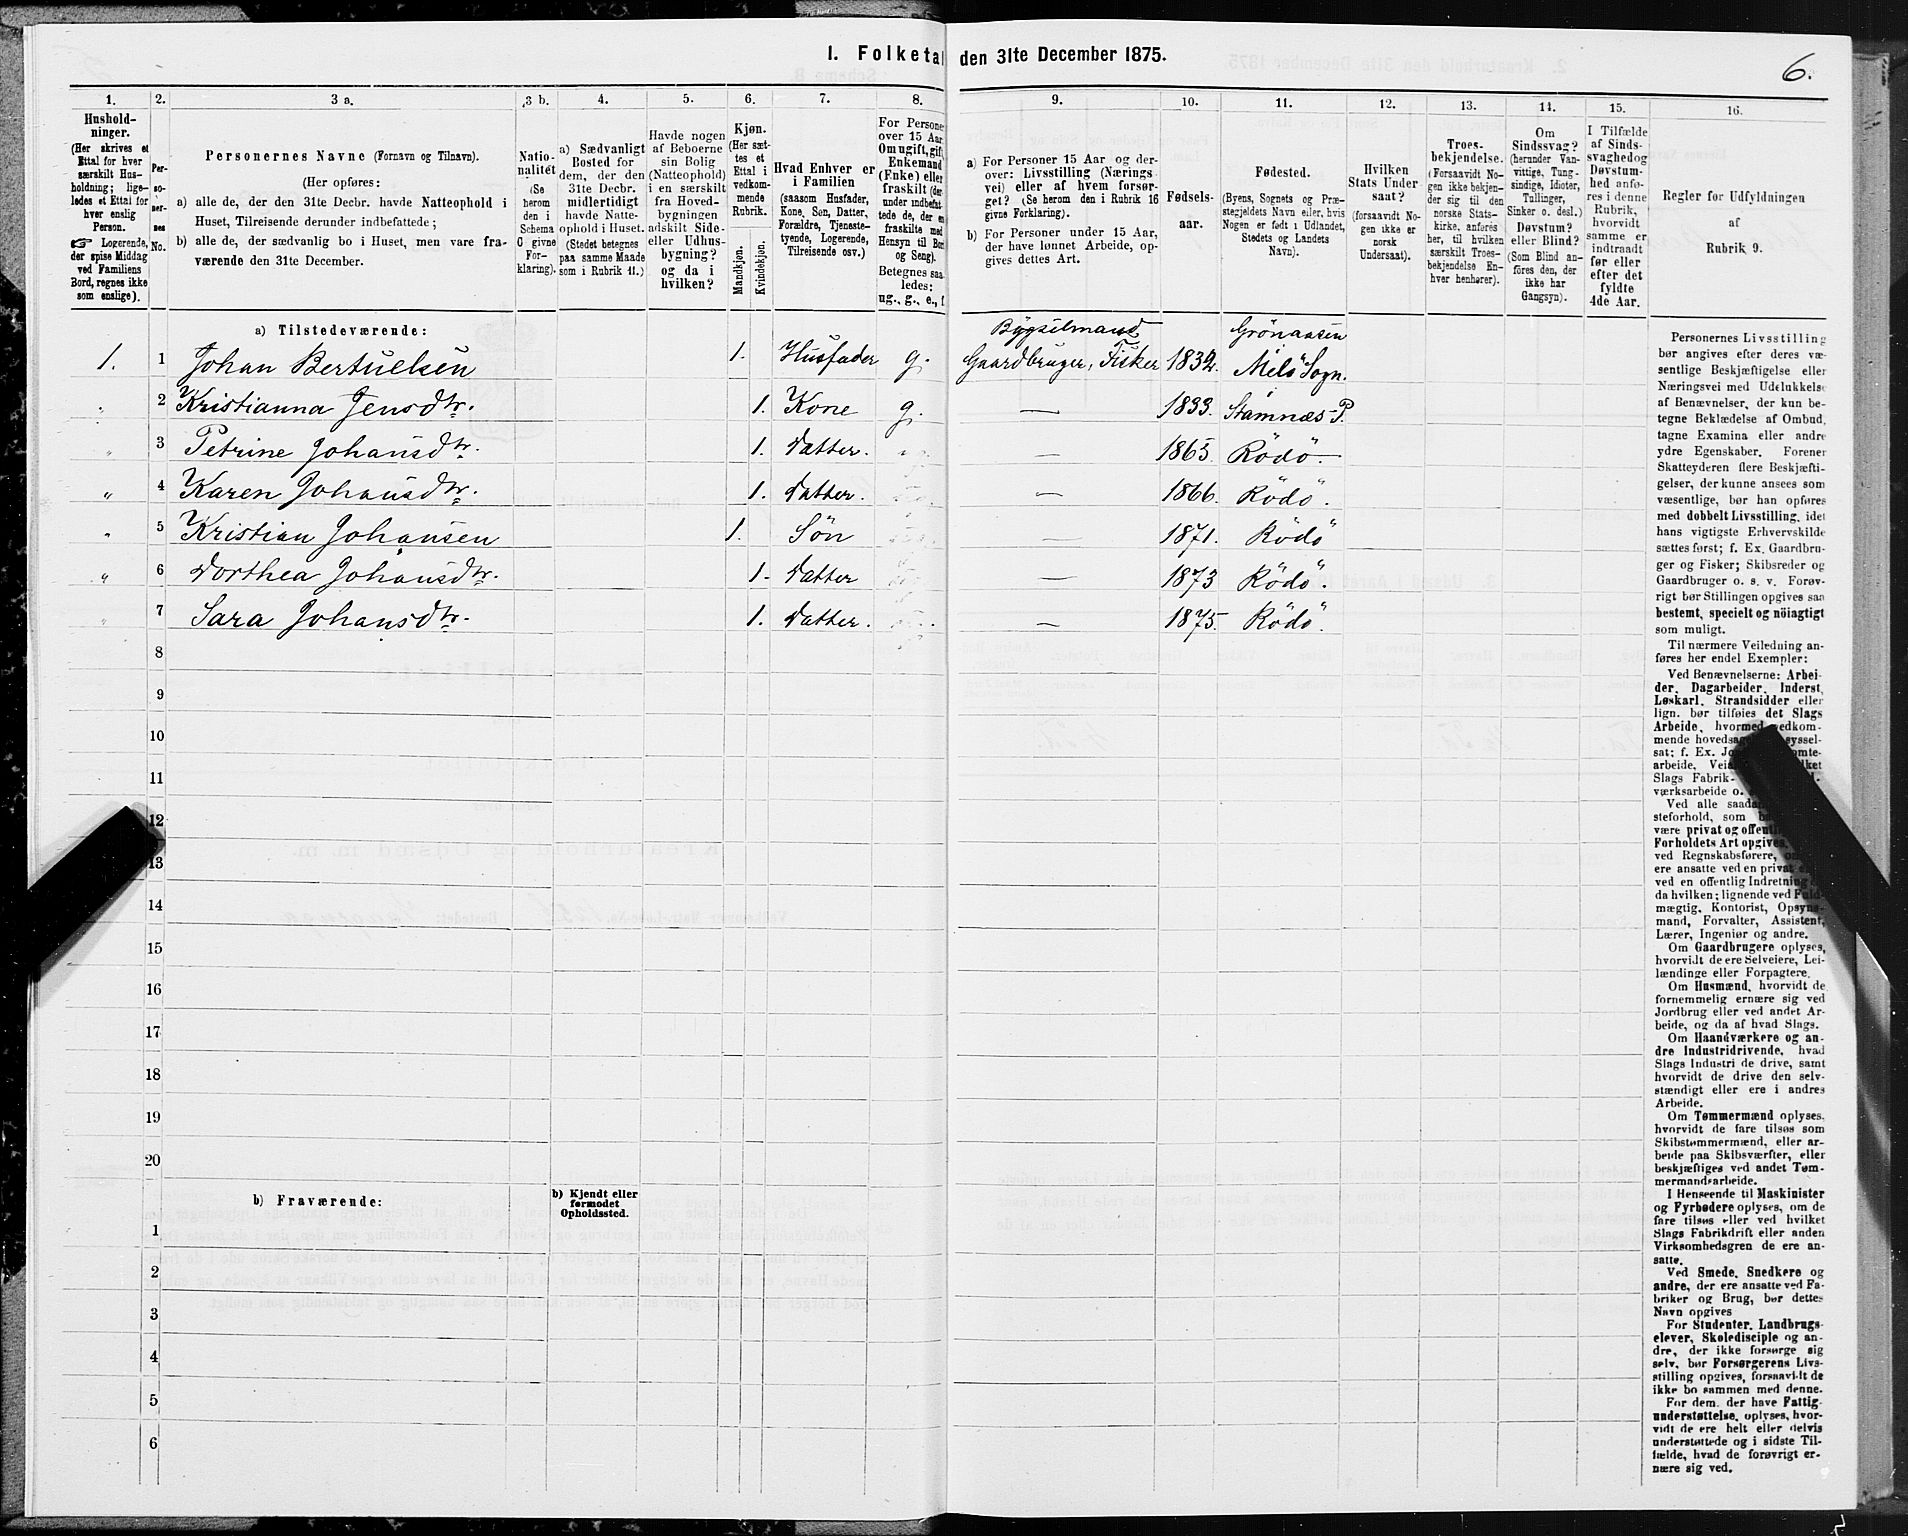 I. Folketal den 31te December 1875.
6.
1. 2. 3 a. 3 b. 4. 5. 6. 7. 8. 9. 10. 11. 12. 13. 14. 15. 16.
Hushold-
ninger.
(Her skrives et
Ettal for hver
særskilt Hus-
holdning; lige-
ledes et Ettal for
hver enslig
Person.
☞ Logerende,
der spise Middag
ved Familiens
Bord, regnes ikke
som enslige).
Per-
so-
ner-
nes
No.
Personernes Navne (Fornavn og Tilnavn).
(Her opføres:
a) alle de, der den 31te Decbr. havde Natteophold i
Huset, Tilreisende derunder indbefattede;
b) alle de, der sædvanlig bo i Huset, men vare fra-
værende den 31te December.
Natio-
nalitet
(Se
herom
den i
Schema
O givne
For-
klaring).
a) Sædvanligt
Bosted for
dem, der den
31te Decbr.
midlertidigt
havde Natte-
ophold i Huset.
(Stedet betegnes
paa samme Maade
som i Rubrik 11.)
Havde nogen
af Beboerne
sin Bolig
(Natteophold)
i en særskilt
fra Hoved-
bygningen
adskilt Side-
eller Udhus-
bygning?
og da i
hvilken?
Kjøn.
(Her sæt-
tes et
Ettal i
vedkom-
mende
Rubrik.
Mandkjøn.
Kvindekjøn.
Hvad Enhver er
i Familien
(saasom Husfader,
Kone, Søn, Datter,
Forældre, Tjeneste-
tyende, Logerende,
Tilreisende osv.)
For Personer
over 15 Aar
Om ugift, gift,
Enkemand
(Enke) eller
fraskilt (der-
under indbefat-
tede de, der ere
fraskilte med
Hensyn til Bord
og Seng).
Betegnes saa-
ledes:
ug., g., e., f.
a) For Personer 15 Aar og der-
over: Livsstilling (Nærings
vei) eller af hvem forsør-
get? (Se herom den i Rubrik 16
givne Forklaring).
b) For Personer under 15 Aar,
der have lønnet Arbeide, op-
gives dettes Art.
Fødsels-
aar.
Fødested.
(Byens, Sognets og Præ-
stegjeldets Navn eller, hvis
Nogen er født i Udlandet,
Stedets og Landets
Navn).
Hvilken
Stats Under
saat?
(forsaavidt No-
gen ikke er
norsk
Undersaat).
Troes-
bekjendelse.
(Forsaavidt No-
gen ikke bekjen-
der sig til den
norske Stats-
kirke, anføres
her, til hvilken
særskilt Troes-
bekjendelse En-
hver henhører).
Om
Sindssvag?
(herunder Van-
vittige, Tung-
sindige, Idioter,
Tullinger,
Sinker o. desl.)
Døvstum?
eller Blind?
(Som Blind an-
føres den, der
ikke har
Gangsyn).
I Tilfælde
af Sinds-
svaghed og
Døvstum-
hed anfø-
res i denne
Rubrik,
hvorvidt
samme er
indtraadt
før eller
efter det
fyldte
4de Aar.
Regler for Udfyldningen
af
Rubrik 9.
a) Tilstedeværende:
Bygselmand Grönaasen
1. 1 Johan Bertuelsen 1. Husfader g. Gaardbruger, Fisker 1832. Melö Sogn.
" 2 Kristianna Jensdtr. 1. Kone g. — 1833. Stamnæs-P.
" 3 Petrine Johansdtr. 1. Datter. — 1865. Rödö.
" 4 Karen Johansdtr. 1. Datter. — 1866. Rödö.
" 5 Kristian Johansen 1. Sön — 1871. Rödö
" 6 Dorthea Johansdtr. 1. Datter — 1873 Rödö.
" 7 Sara Johansdtr. 1. Datter. — 1875. Rödö.
8
9
10
11
12
13
14
15
16
17
18
19
20
b) Fraværende:
b) Kjendt eller
formodet
Opholdssted.
1
2
3
4
5
6
Personernes Livsstilling
bør angives efter deres væ-
sentlige Beskjæftigelse eller
Næringsvei med Udelukkelse
af Benævnelser, der kun be-
tegne Beklædelse af Ombud,
tagne Examina eller andre
ydre Egenskaber. Forener
Skatteyderen flere Beskjæfti-
gelser, der kunne ansees som
væsentlige, bør han opføres
med dobbelt Livsstilling, idet
hans vigtigste Erhvervskilde
sættes først; f. Ex. Gaardbru-
ger og Fisker; Skibsreder og
Gaardbruger o. s. v. Forøv-
rigt bør Stillingen opgives saa
bestemt, specielt og nöiagtigt
som muligt.
Til nærmere Veiledning an-
føres her endel Exempler:
Ved Benævnelserne: Arbei-
der, Dagarbeider, Inderst,
Løskarl, Strandsidder eller
lign. bør tilføies det Slags
Arbeide, hvormed vedkom-
mende hovedsag syssel-
sat; f. Ex. Jo omte-
arbeide, Vei lket
Slags Fabrik-
værksarbeide o.
Ved alle saadan
steforhold, som
være privat og offent
Forholdets Art opgives,
ved Regnskabsførere,
ere ansatte ved en privat
ved en offentlig Indretning
da hvilken; lignende ved Fuld-
mægtig, Kontorist, Opsyns-
mand, Forvalter, Assistent,
Lærer, Ingeniør og andre.
Om Gaardbrugere oplyses,
hvorvidt de ere Selveiere, Lei-
lændinge eller Forpagtere.
Om Husmænd, hvorvidt de
fornemmelig ernære sig ved
Jordbrug eller ved andet Ar-
beide, og da af hvad Slags.
Om Haandværkere og an-
dre Industridrivende, hvad
Slags Industri de drive, samt
hvorvidt de drive den selv-
stændigt eller ere i andres
Arbeide.
Om Tømmermænd oplyses,
hvorvidt de fare tilsøs som
Skibstømmermænd, eller ar-
beide paa Skibsværfter, eller
beskjæftiges ved andet Tøm-
mermandsarbeide.
I Henseende til Maskinister
og Fyrbødere oplyses, om de
fare tilsøs eller ved hvilket
Slags Fabrikdrift eller anden
Virksomhedsgren de ere an-
satte.
Ved Smede, Snedkere og
andre, der ere ansatte ved Fa-
briker og Brug, bør dettes
Navn opgives
For Studenter, Landbrugs-
elever, Skoledisciple og an-
dre, der ikke forsørge sig
selv, bør Forsørgerens Livs-
stilling opgives, forsaavidt de
ikke bo sammen med denne.
For dem, der have Fattig-
understøttelse, oplyses, hvor-
vidt de ere helt eller delvis
understøttede og i sidste Til-
fælde, hvad de forøvrigt er-
nære sig ved.